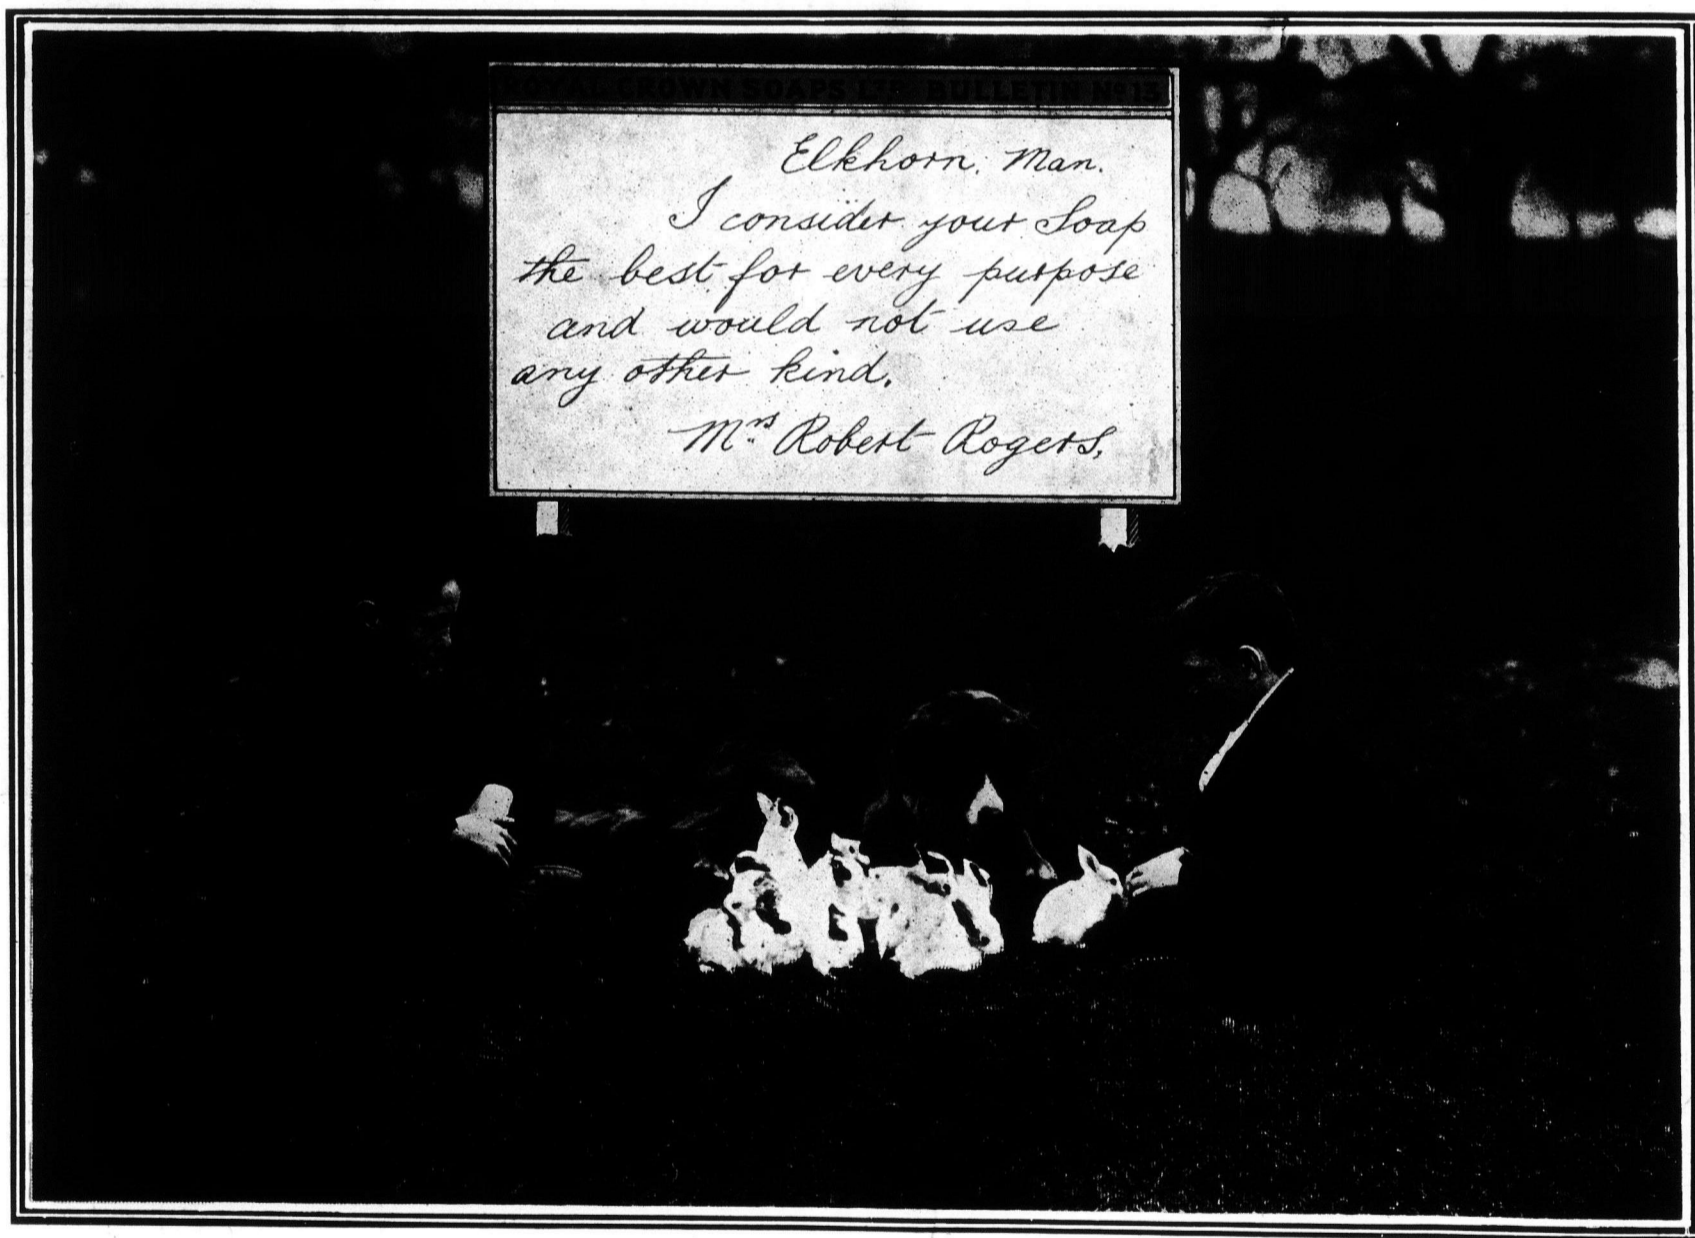 ROYAL CROWN SOAPS LTD BULLETIN No 13
Elkhorn, Man.
I consider your Soap
the best for every purpose
and would not use
any other kind.
Mrs Robert Rogers,